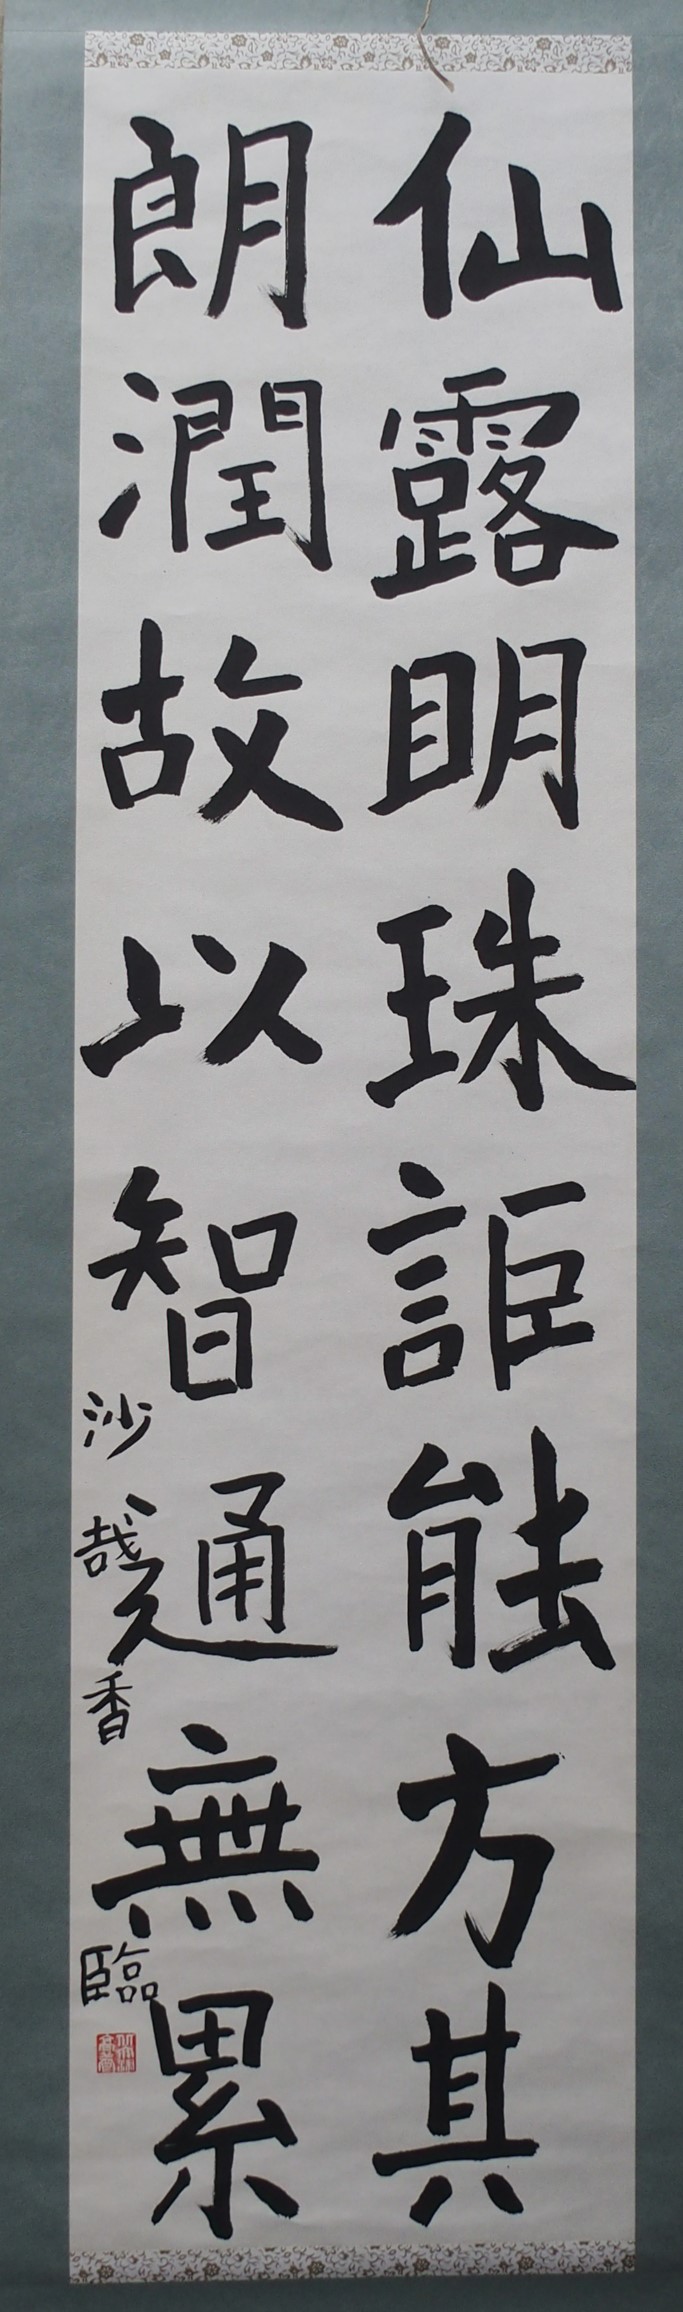 仙露明珠詎能方其
朗潤故以智通無累
沙哉香臨